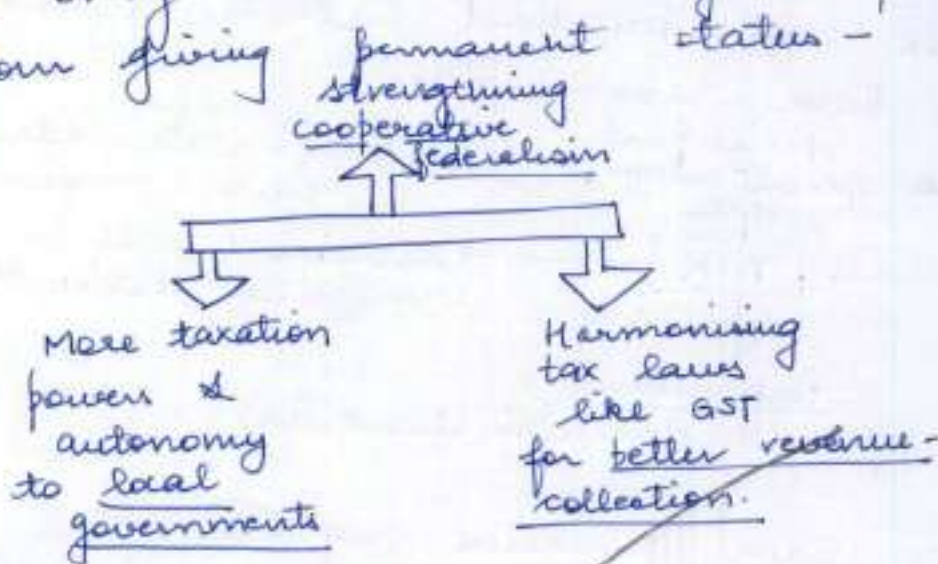 giving permanent status -
strengthining
cooperative
federalism
More taxation
powers &
autonomy
to local
governments
Harmonising
tax laws
like GST
for better revenue-
collection.